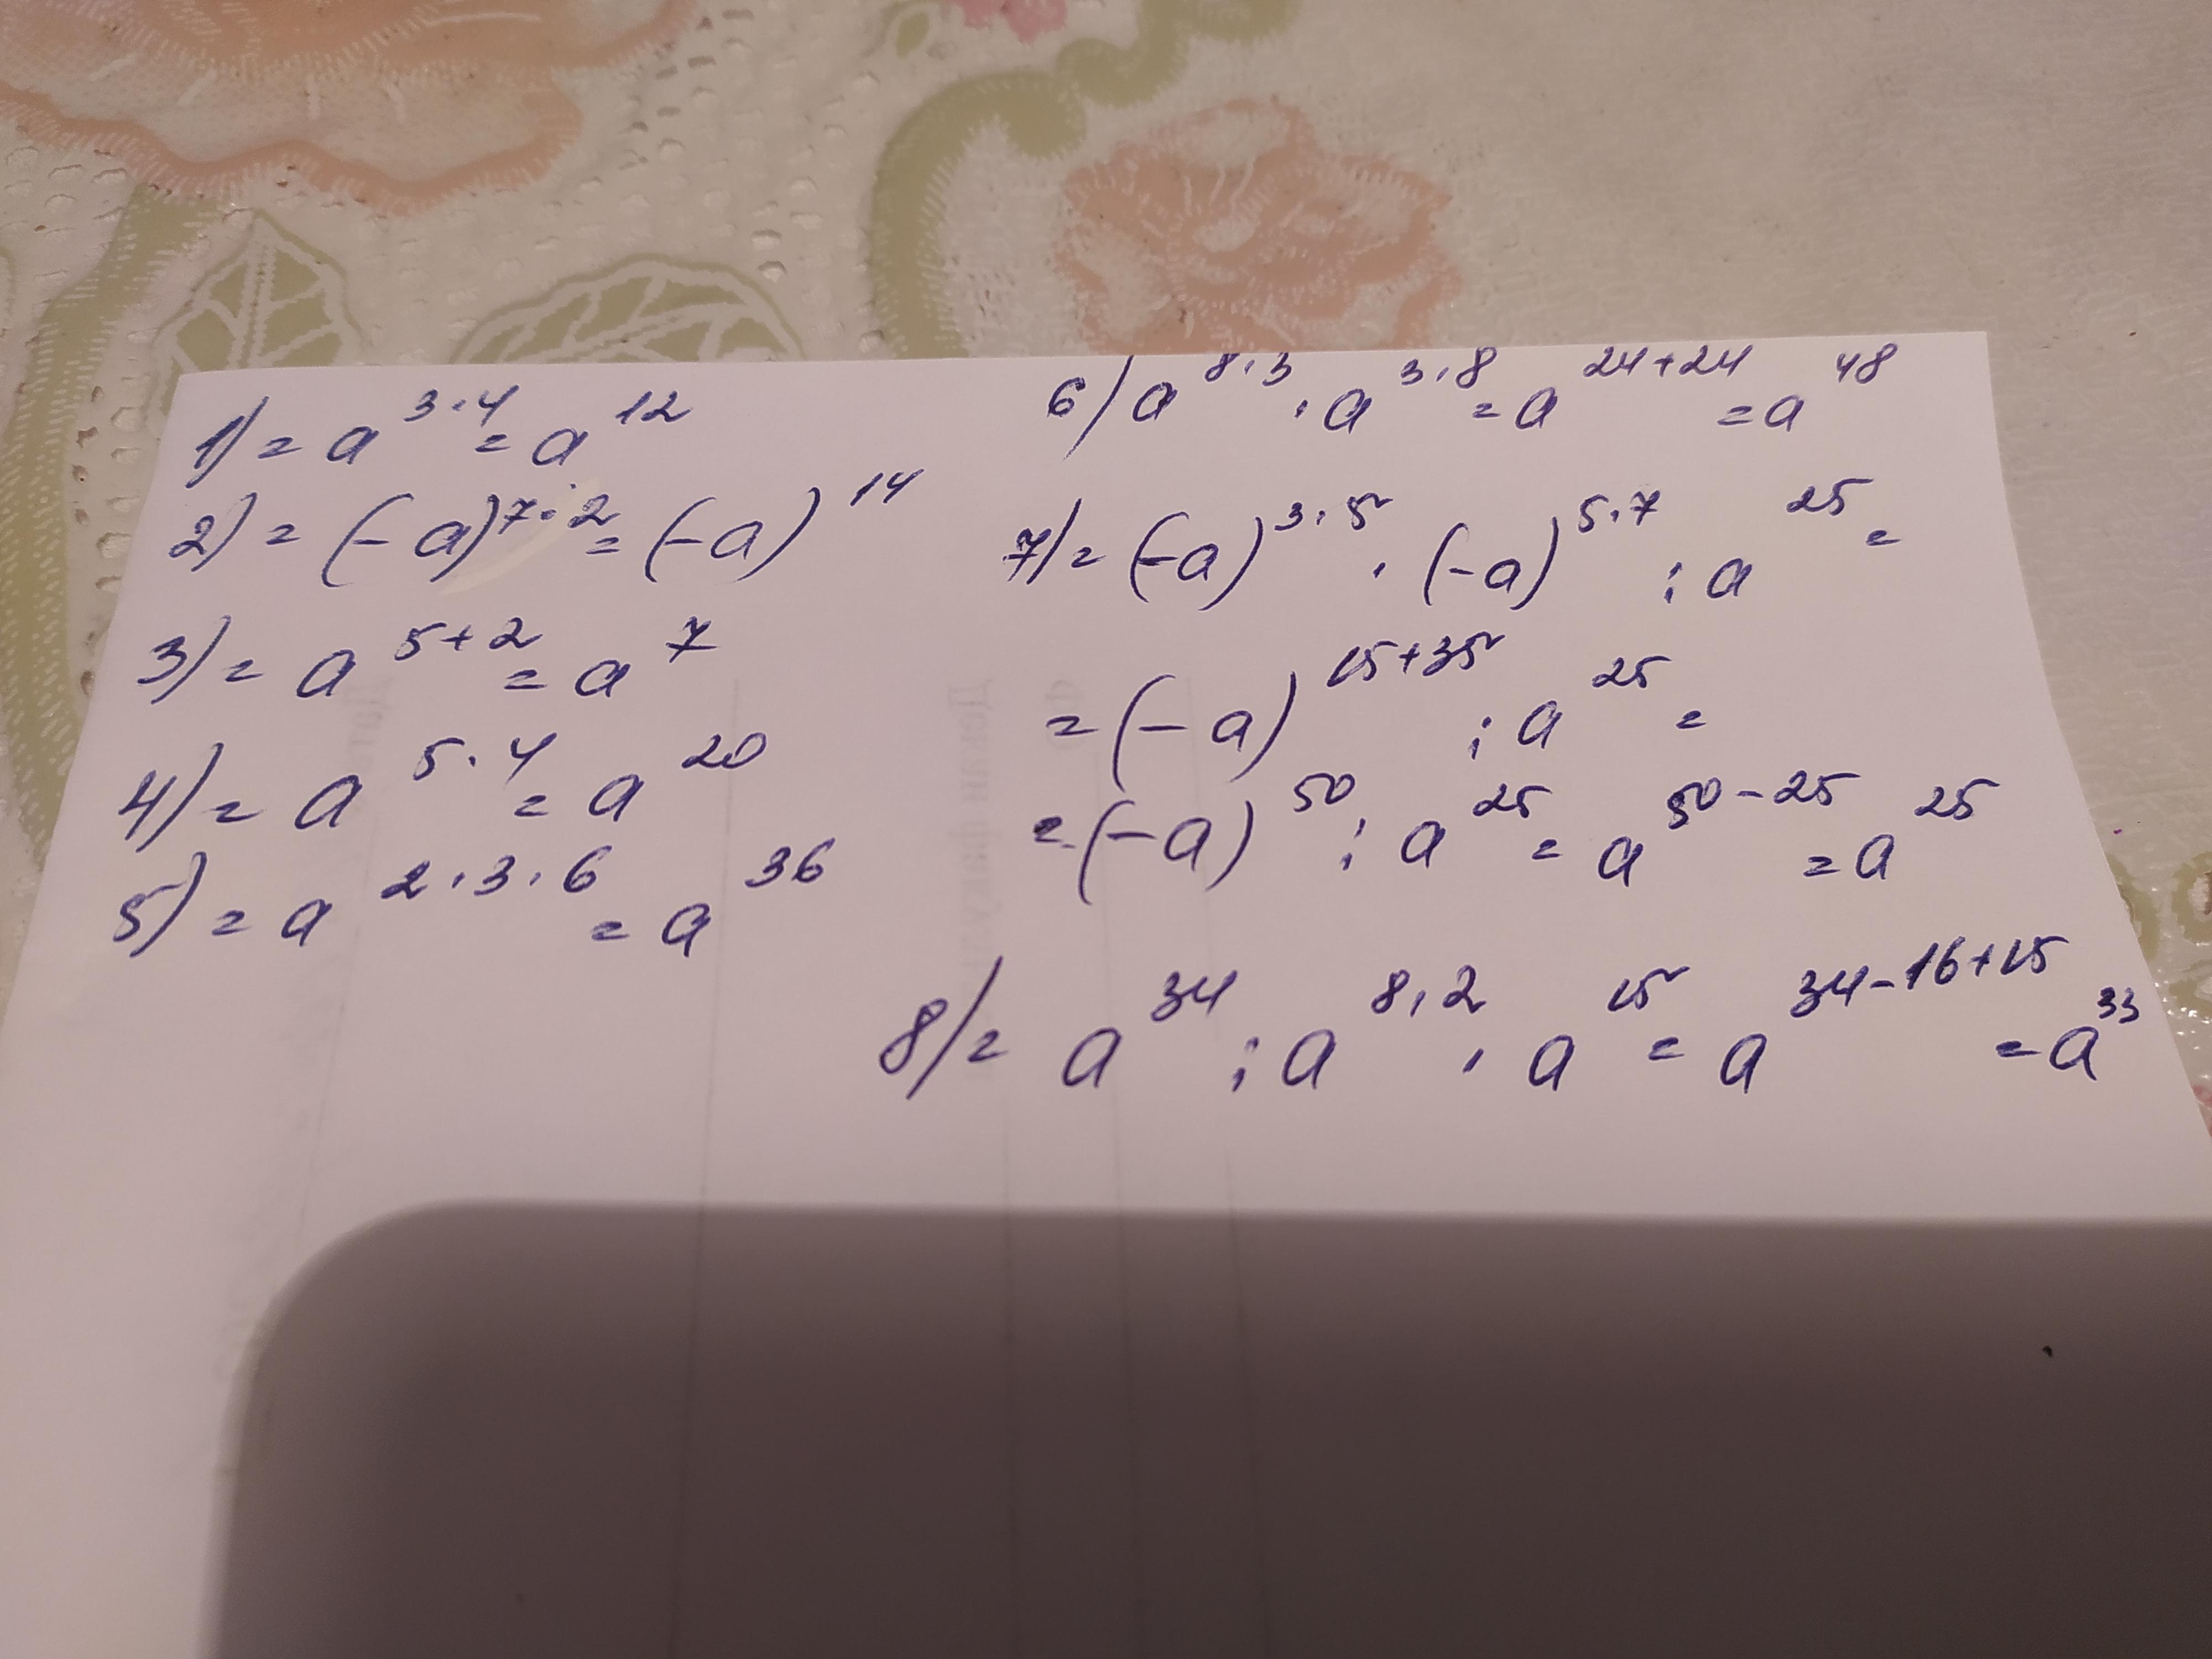 1) = a^3·4 = a^12
2) = (-a)^7·2 = (-a)^14
3) = a^5+2 = a^7
4) = a^5·4 = a^20
5) = a^2·3·6 = a^36
6) a^8·3 · a^3·8 = a^24+24 = a^48
7) = (-a)^3·5 · (-a)^5·7 : a^25 =
= (-a)^15+35 : a^25 =
= (-a)^50 : a^25 = a^50-25 = a^25
8) = a^34 : a^8·2 · a^15 = a^34-16+15 = a^33